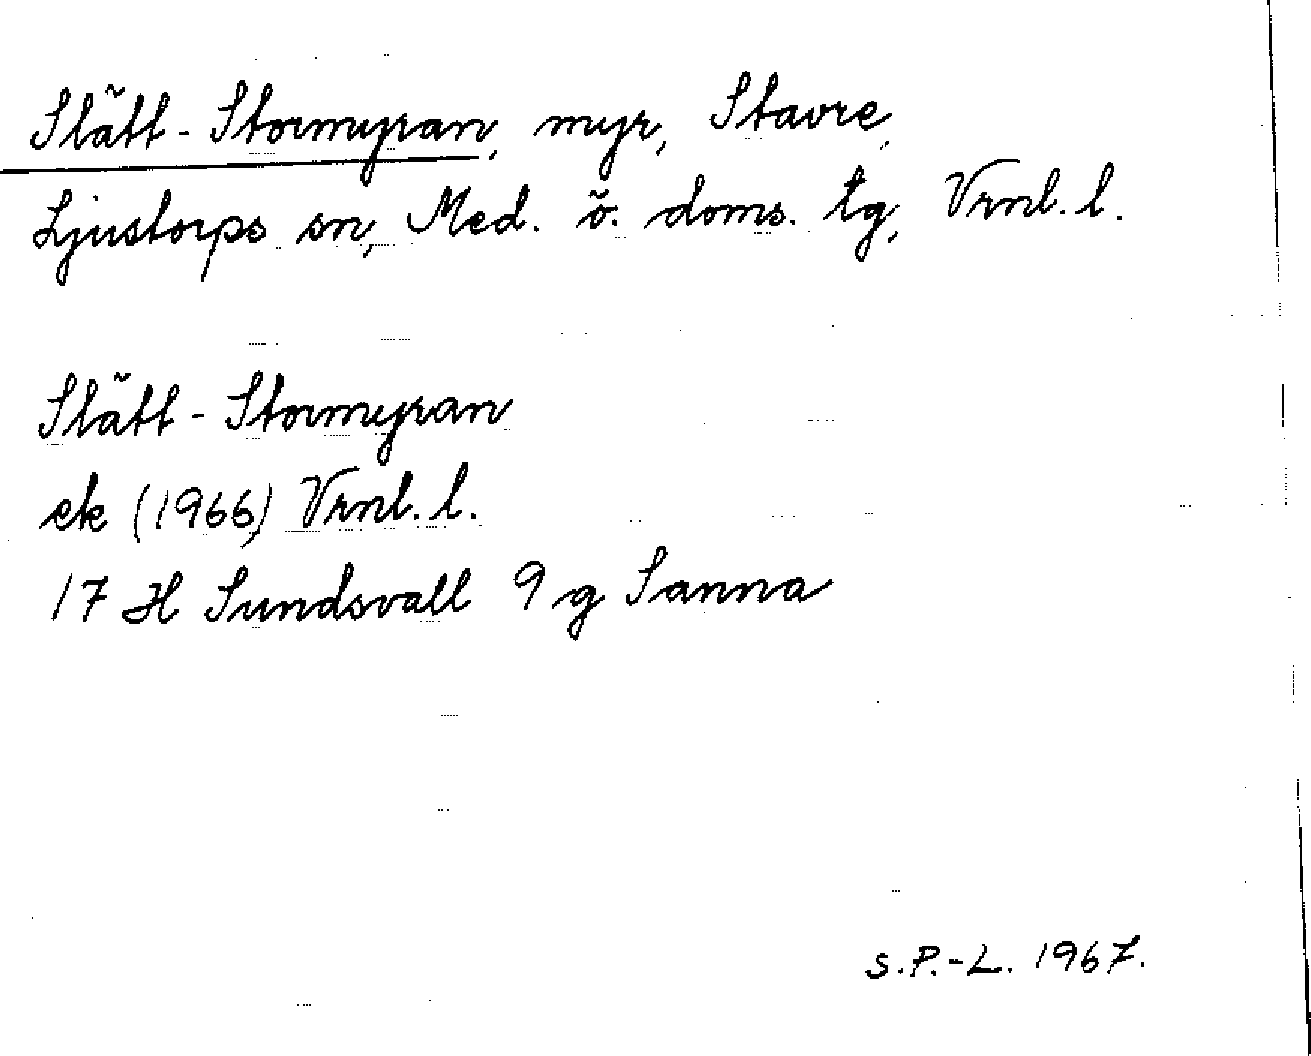 Slätt-Stormyran, myr, Stavre,
Ljustorps sn, Med. ö. doms. tg, Vrnl. l.
Slätt-Stormyran
ek (1966) Vrnl. l.
17 H Sundsvall 9 g Sanna
S.P.-L. 1967.